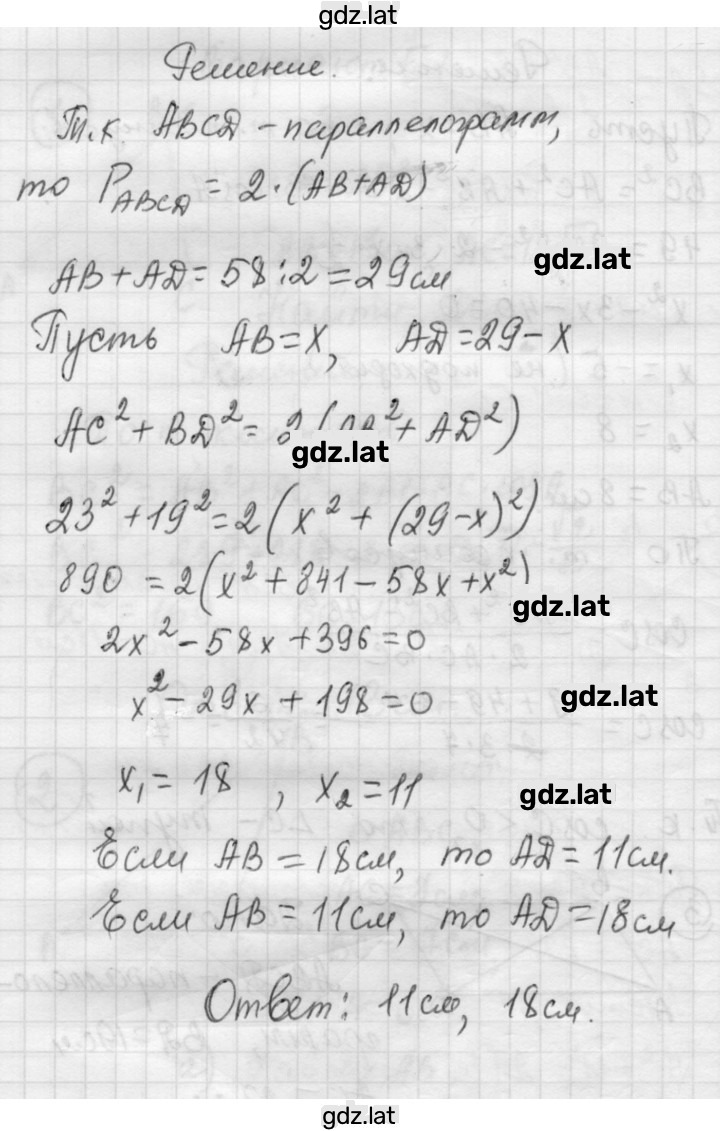 gdz.lat
Решение.
Т.к ABCD - параллелограмм,
то P_ABCD = 2·(AB+AD)
AB+AD=58:2=29см
gdz.lat
Пусть AB=x, AD=29-x
AC²+BD²= 2( ²+AD²)
gdz.lat
23²+19²=2(x²+(29-x)²)
890 = 2(x²+841-58x+x²)
gdz.lat
2x²-58x+396=0
x²-29x+198=0
gdz.lat
x₁=18, x₂=11
gdz.lat
Если AB=18см, то AD=11см.
Если AB=11см, то AD=18см
Ответ: 11см, 18см.
gdz.lat